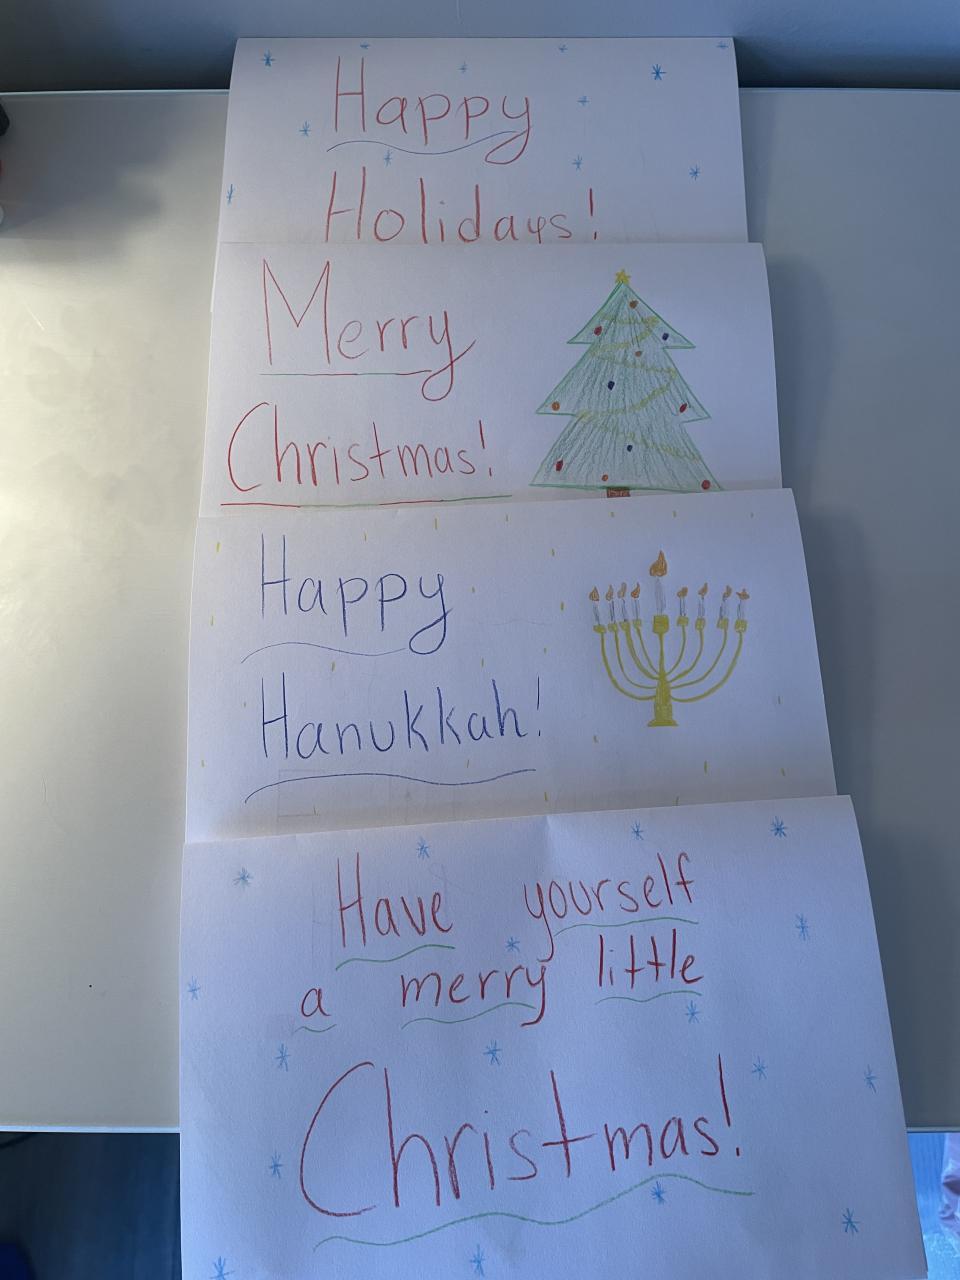 Happy
Holidays!
Merry
Christmas!
Happy
Hanukkah!
Have yourself
a merry little
Christmas!